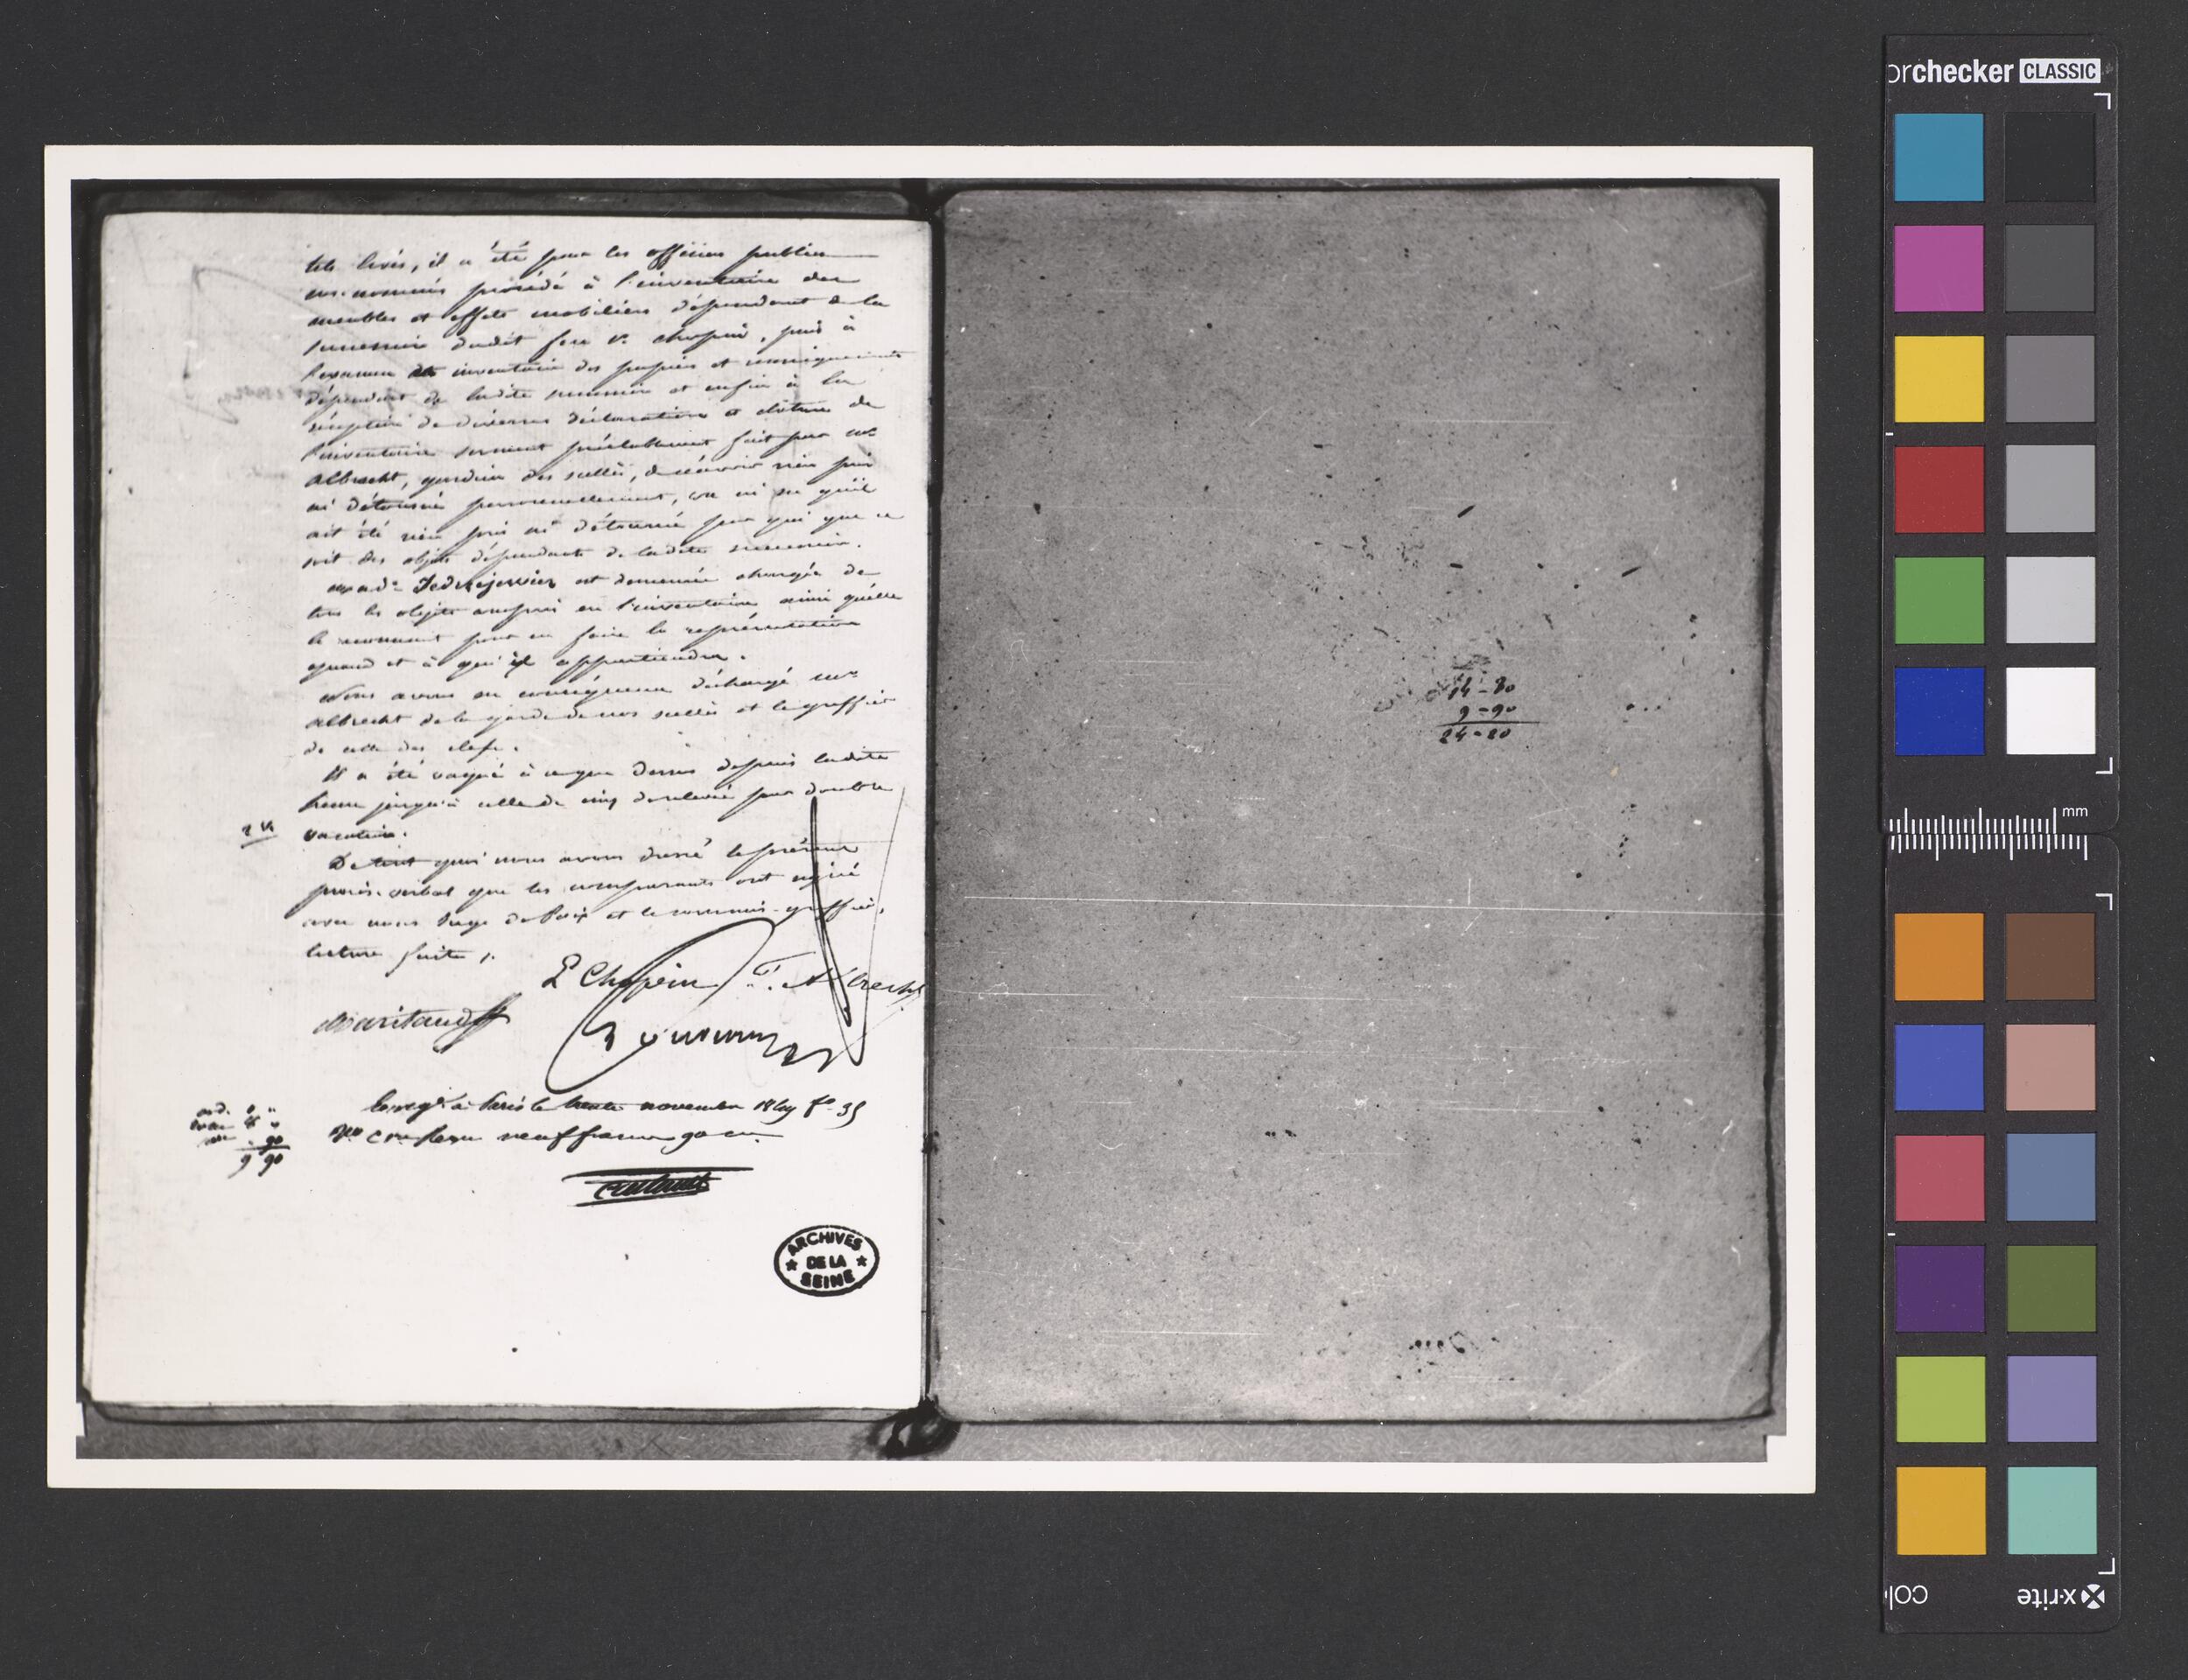 tels levés, il a été par les officiers publics
sus-nommés procédé à l'inventaire des
meubles et effets mobiliers dépendant de la
succession dudit feu Sr. Chopin, puis à
l'examen inventaire des papiers et renseignements
dépendant de ladite succession et enfin à la
réception de diverses déclarations et clôture de
l'inventaire serment préalablement fait par Mr
Albrecht, gardien des scellés, de n'avoir rien pris
ni détourné personnellement, vu ni su qu'il
ait été rien pris ni détourné par qui que ce
soit des objets dépendants de ladite succession.
Made Jedrzejewicz est demeurée chargée de
tous les objets compris en l'inventaire ainsi qu'elle
le reconnait pour en faire la représentation
quand et à qui il appartiendra.
Nous avons en conséquence déchargé Mr
Albrecht de la garde de nos scellés et le greffier
de celle des clefs.
Il a été vaqué à ce que dessus depuis ladite
heure jusqu'à celle de cinq de relevée par double
2 V
vacation.
De tout quoi nous avons dressé le présent
procès-verbal que les comparants ont signé
avec nous Juge de Paix et le commis-greffier,
lecture faite.
L Chopin T. Albrecht
Enregé à Paris le trente novembre 1849 fo 35
neuf francs 90 c
90
9 90
ARCHIVES
DE LA
SEINE
14-90
9-90
24-80
orchecker CLASSIC
mm
x-rite
col